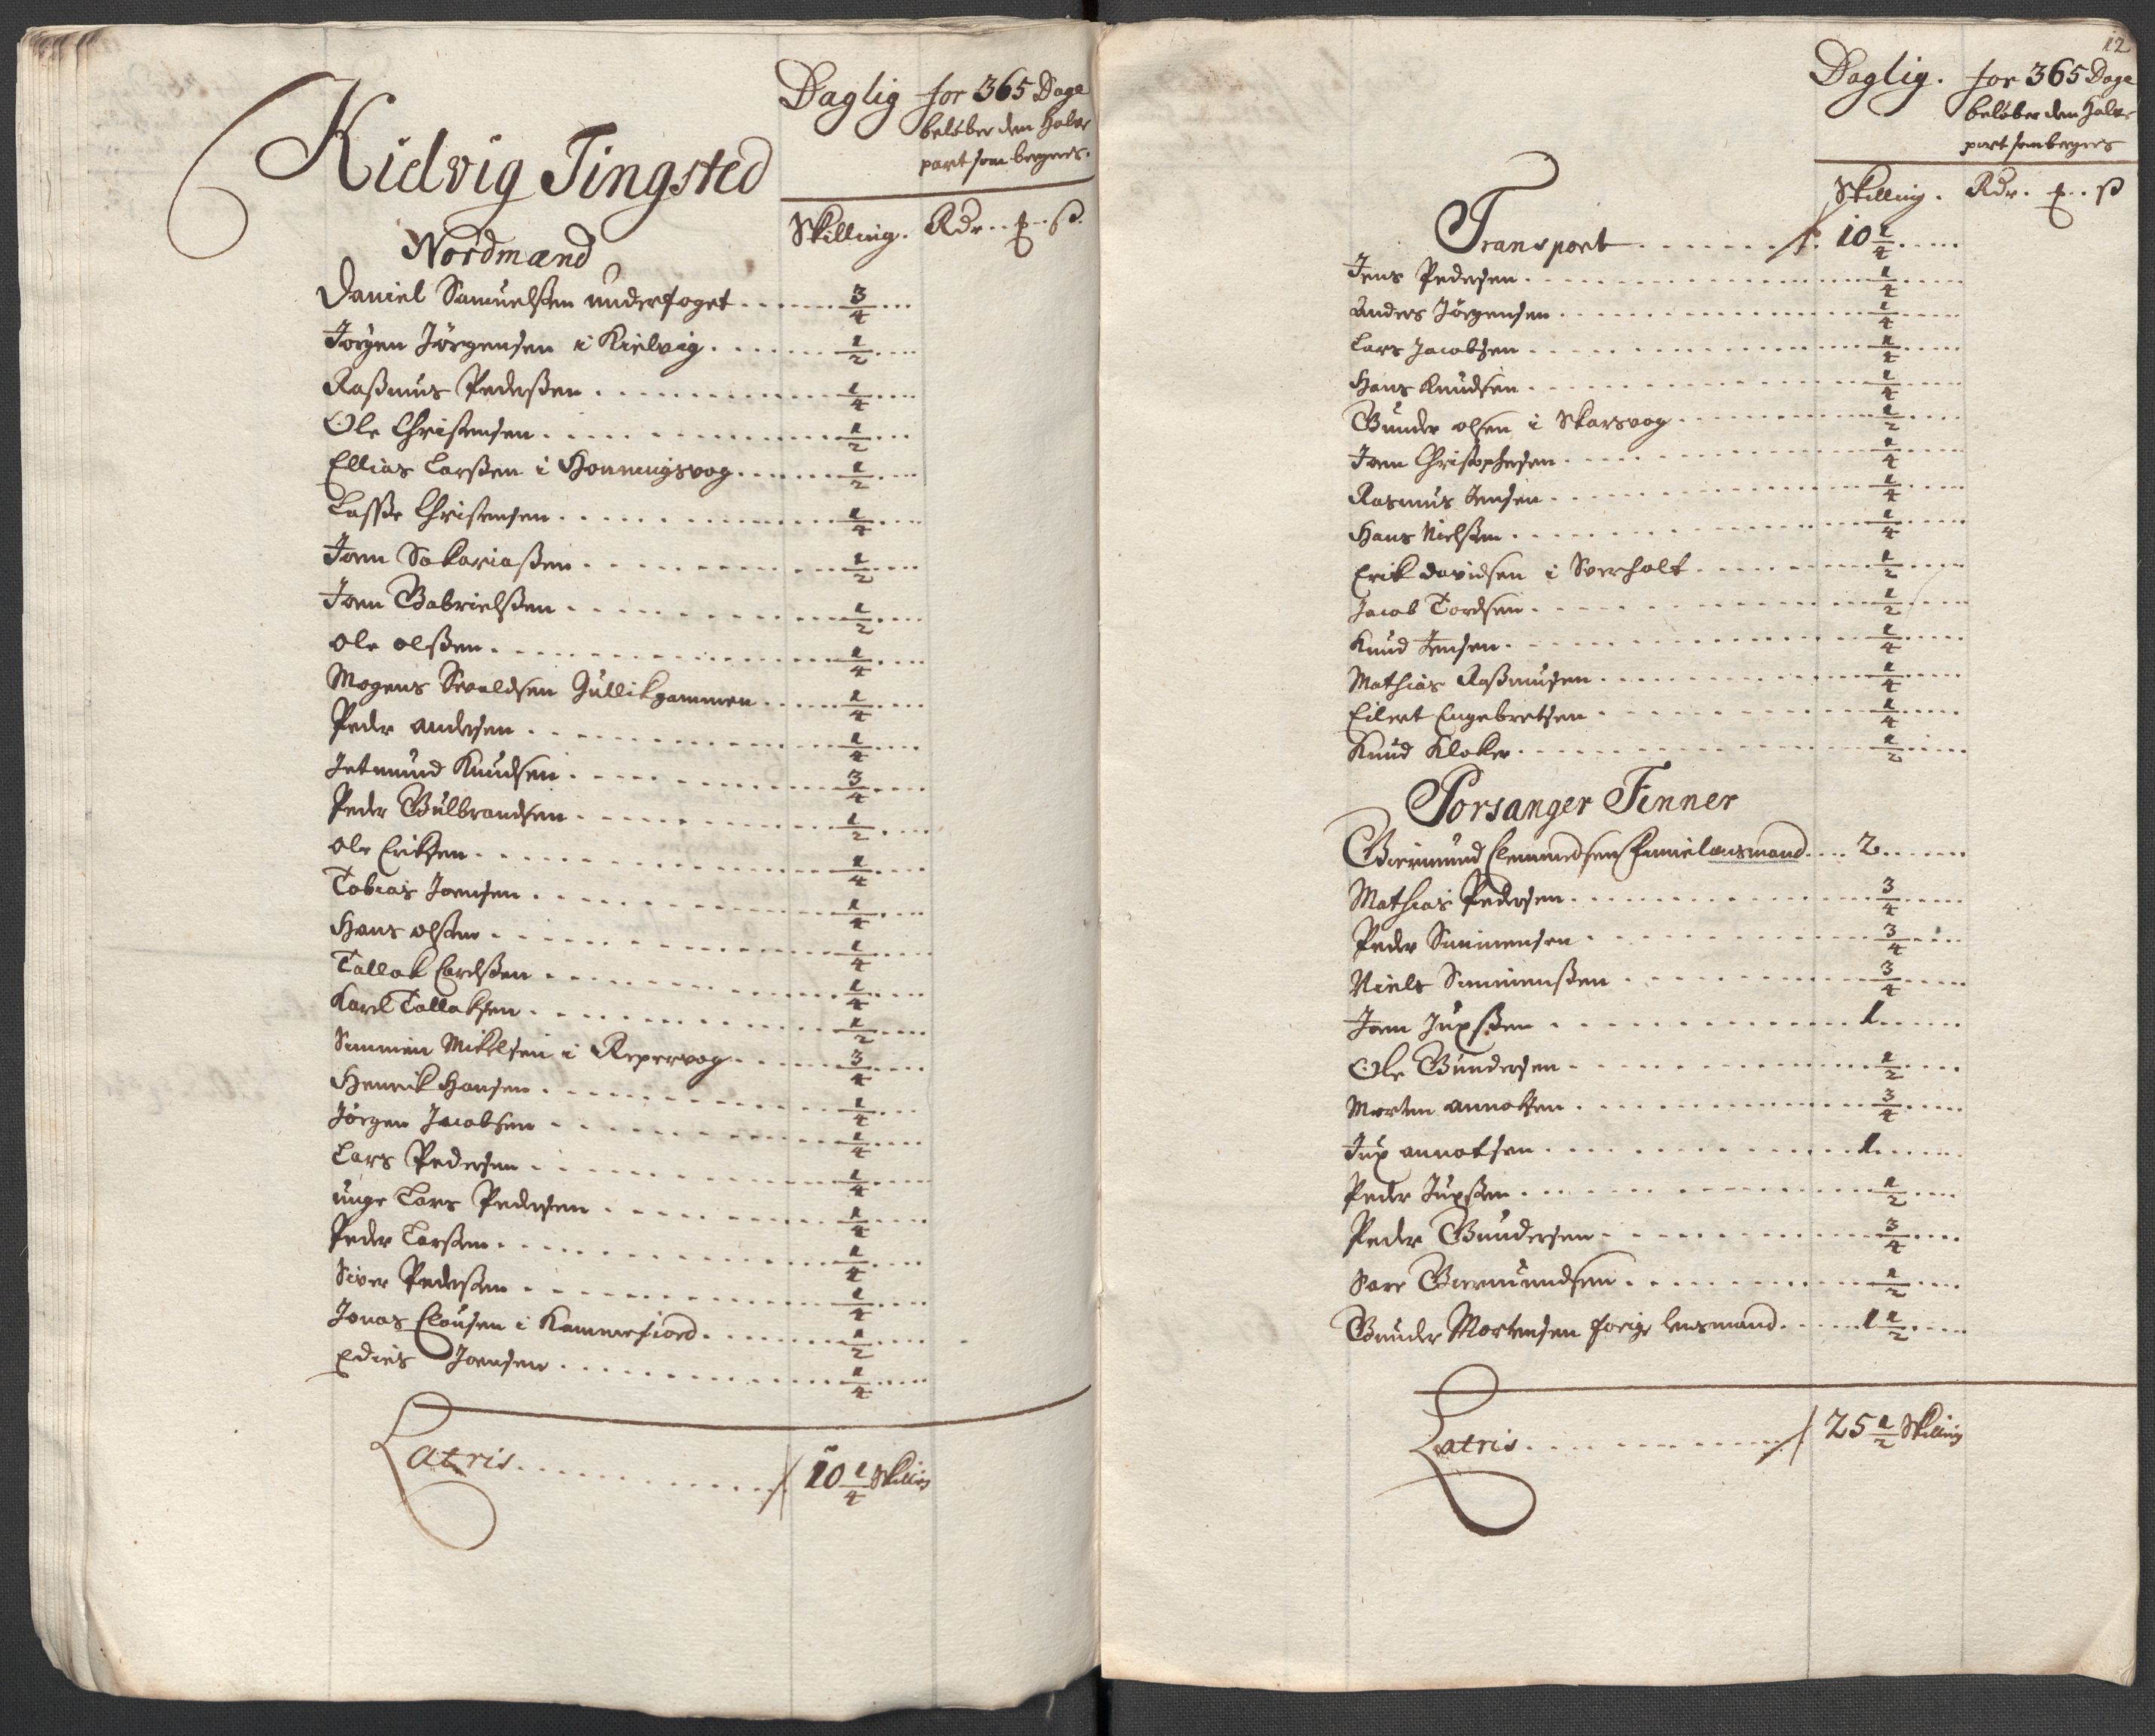 Daglig for 365 Dage
beløber den halve
part som bereignes.
Kielvig Tingsted
Skilling. Rdr.. ₰.. ß.
Nordmænd
Daniel Samuelsen underfoget 3/4
Jørgen Jørgensen i Kielvig 1/2
Rasmus Pedersen 1/4
Ole Christensen 1/2
Ellias Larsen i Honningsvog 1/2
Lasse Christensen 1/4
Joen Sakariasen 1/2
Joen Gabrielsen 1/2
Ole Olsen 1/4
Mogens Sevaldsen Gullikgammen 1/4
Peder Andersen 1/4
Jetmund Knudsen 3/4
Peder Gulbrandsen 1/2
Ole Eriksen 1/4
Tobias Joensen 1/4
Hans Olsen 1/4
Tallak Carlsen 1/4
Karl Tallaksen 1/2
Simmen Mikelsen i Repervog 3/4
Henrik Hansen 1/4
Jørgen Jacobsen 1/4
Lars Pedersen 1/4
unge Lars Pedersen 1/4
Peder Larsen 1/4
Siver Pedersen 1/4
Jonas Clausen i Kammefiord 1/2
Joensen 1/4
Latris 10 1/4 Skilling
12
Daglig. for 365 Dage
beløber den halve
part som bereignes
Skilling. Rdr. ₰.. ß
Transport 10 1/4
Jens Pedersen 1/4
Anders Jørgensen 1/4
Lars Jacobsen 1/4
Hans Knudsen 1/4
Gunder Olsen i Skarsvog 1/2
Joen Christophersen 1/4
Rasmus Jensen 1/4
Hans Nielsen 1/4
Erik Davidsen i Sverholt 1/2
Jacob Tordsen 1/2
Knud Jensen 1/4
Mathias Rasmusen 1/4
Eilert Engebretsen 1/4
Knud Kloker 1/2
Porsanger Finner
Giermund Clemmedsen Finnelensmand 2
Mathias Pedersen 3/4
Peder Simmensen 3/4
Niels Simmensen 3/4
Joen Jupsen 1
Ole Gundersen 1/2
Morten Annotsen 3/4
Jup Annotsen 1
Peder Jupsen 1/2
Peder Gundersen 3/4
Sare Giermundsen 1/2
Gunder Mortensen forige lensmand 1 1/2
Latris 25 1/2 Skilling